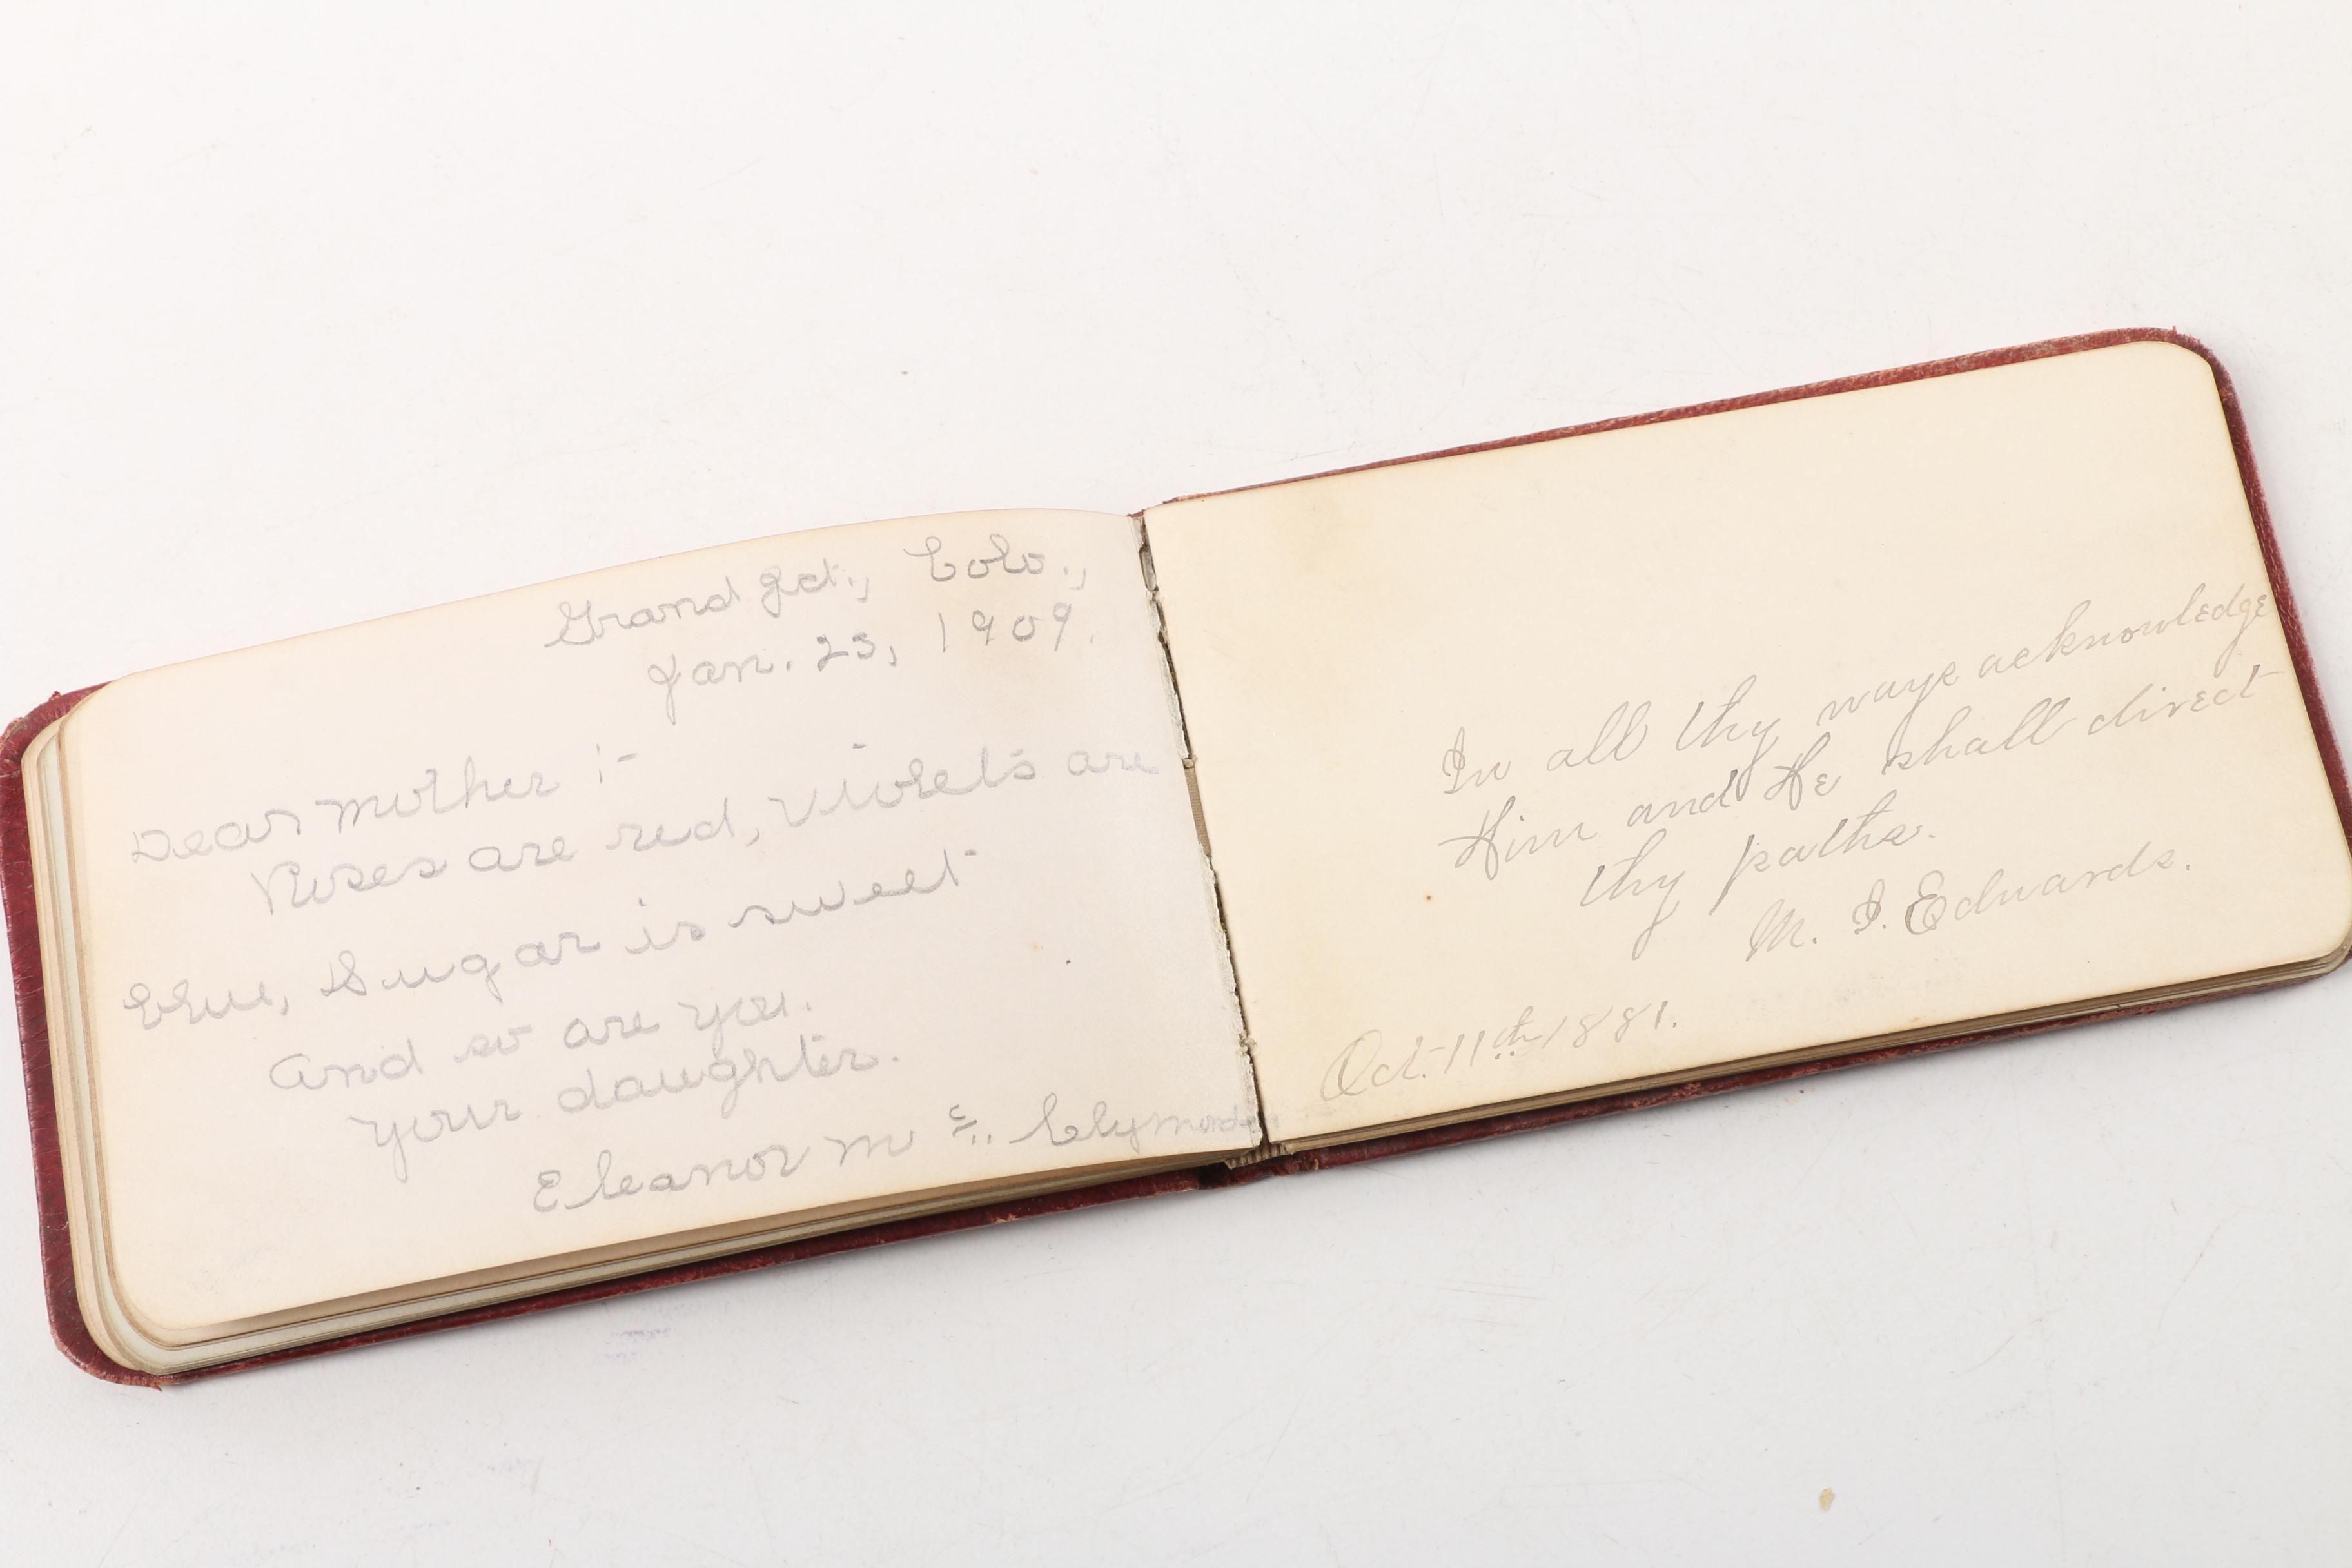 Grand Jct., Colo.,
Jan. 23, 1909.
Dear Mother :-
Roses are red, Violets are
blue, Sugar is sweet
And so are you.
Your daughter.
Eleanor M
In all thy ways acknowledge
Him and He shall direct
thy paths.
M. I. Edwards.
Oct. 11th 1881.